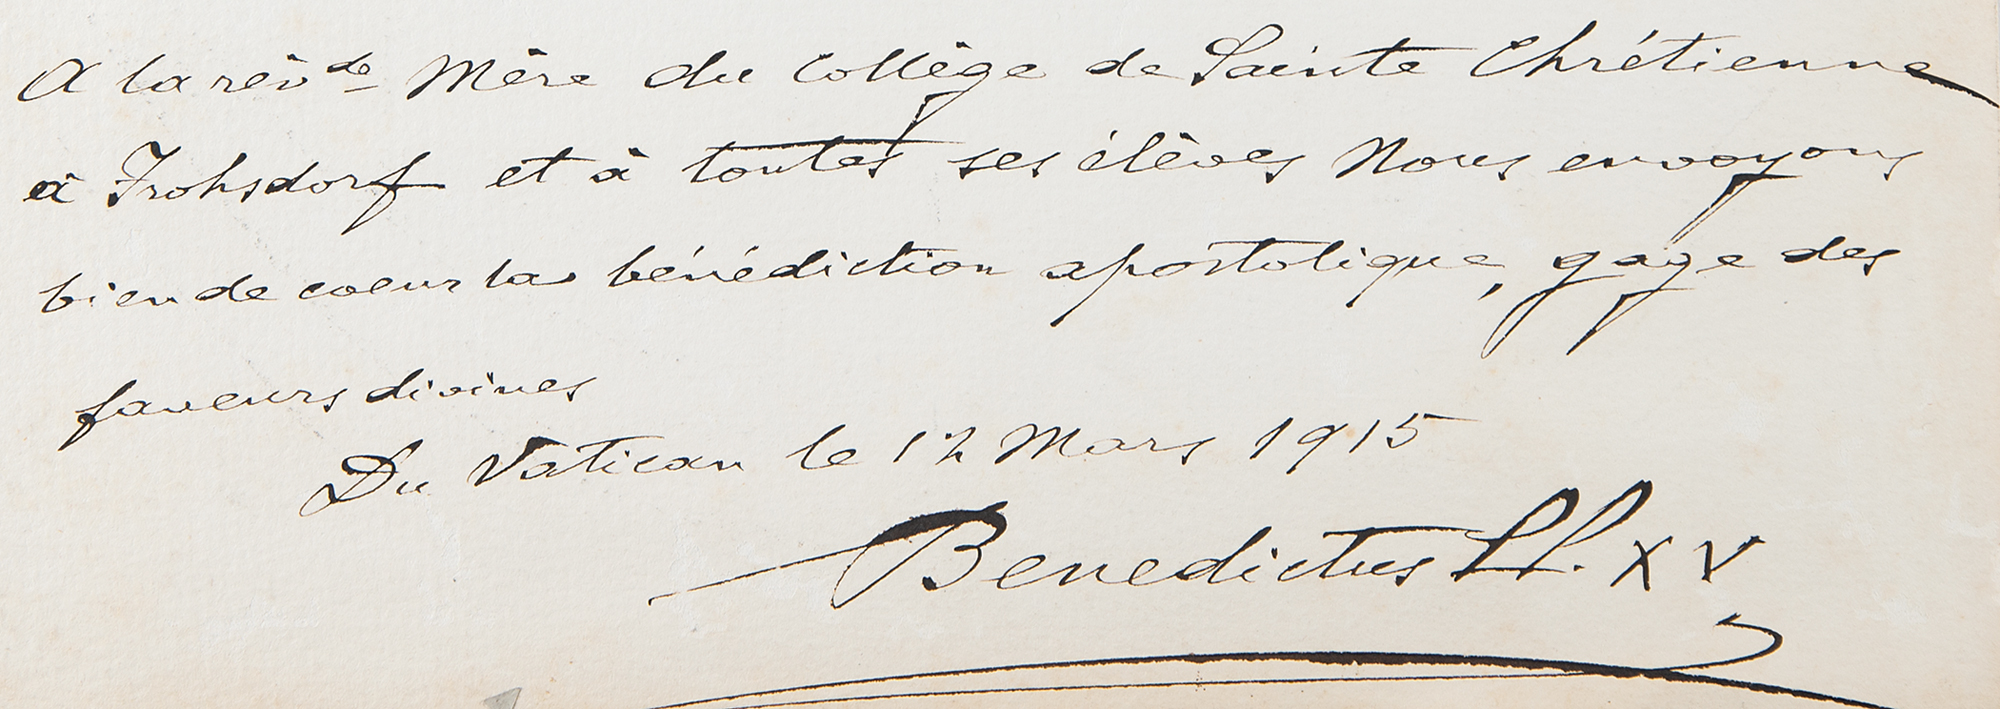 A la révde Mère du Collège de Sainte Chrétienne
à Frohsdorf et à toutes ses élèves Nous envoyons
bien de coeur la bénédiction apostolique, gage des
faveurs divines
Du Vatican le 12 Mars 1915
Benedictus PP. XV